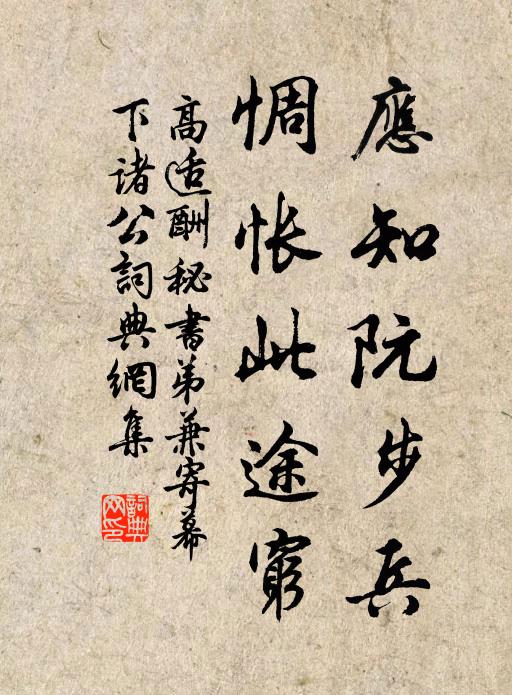 應知阮步兵
惆悵此途窮
高适酬秘書弟兼寄幕
下諸公詞典網集
詞典
网印